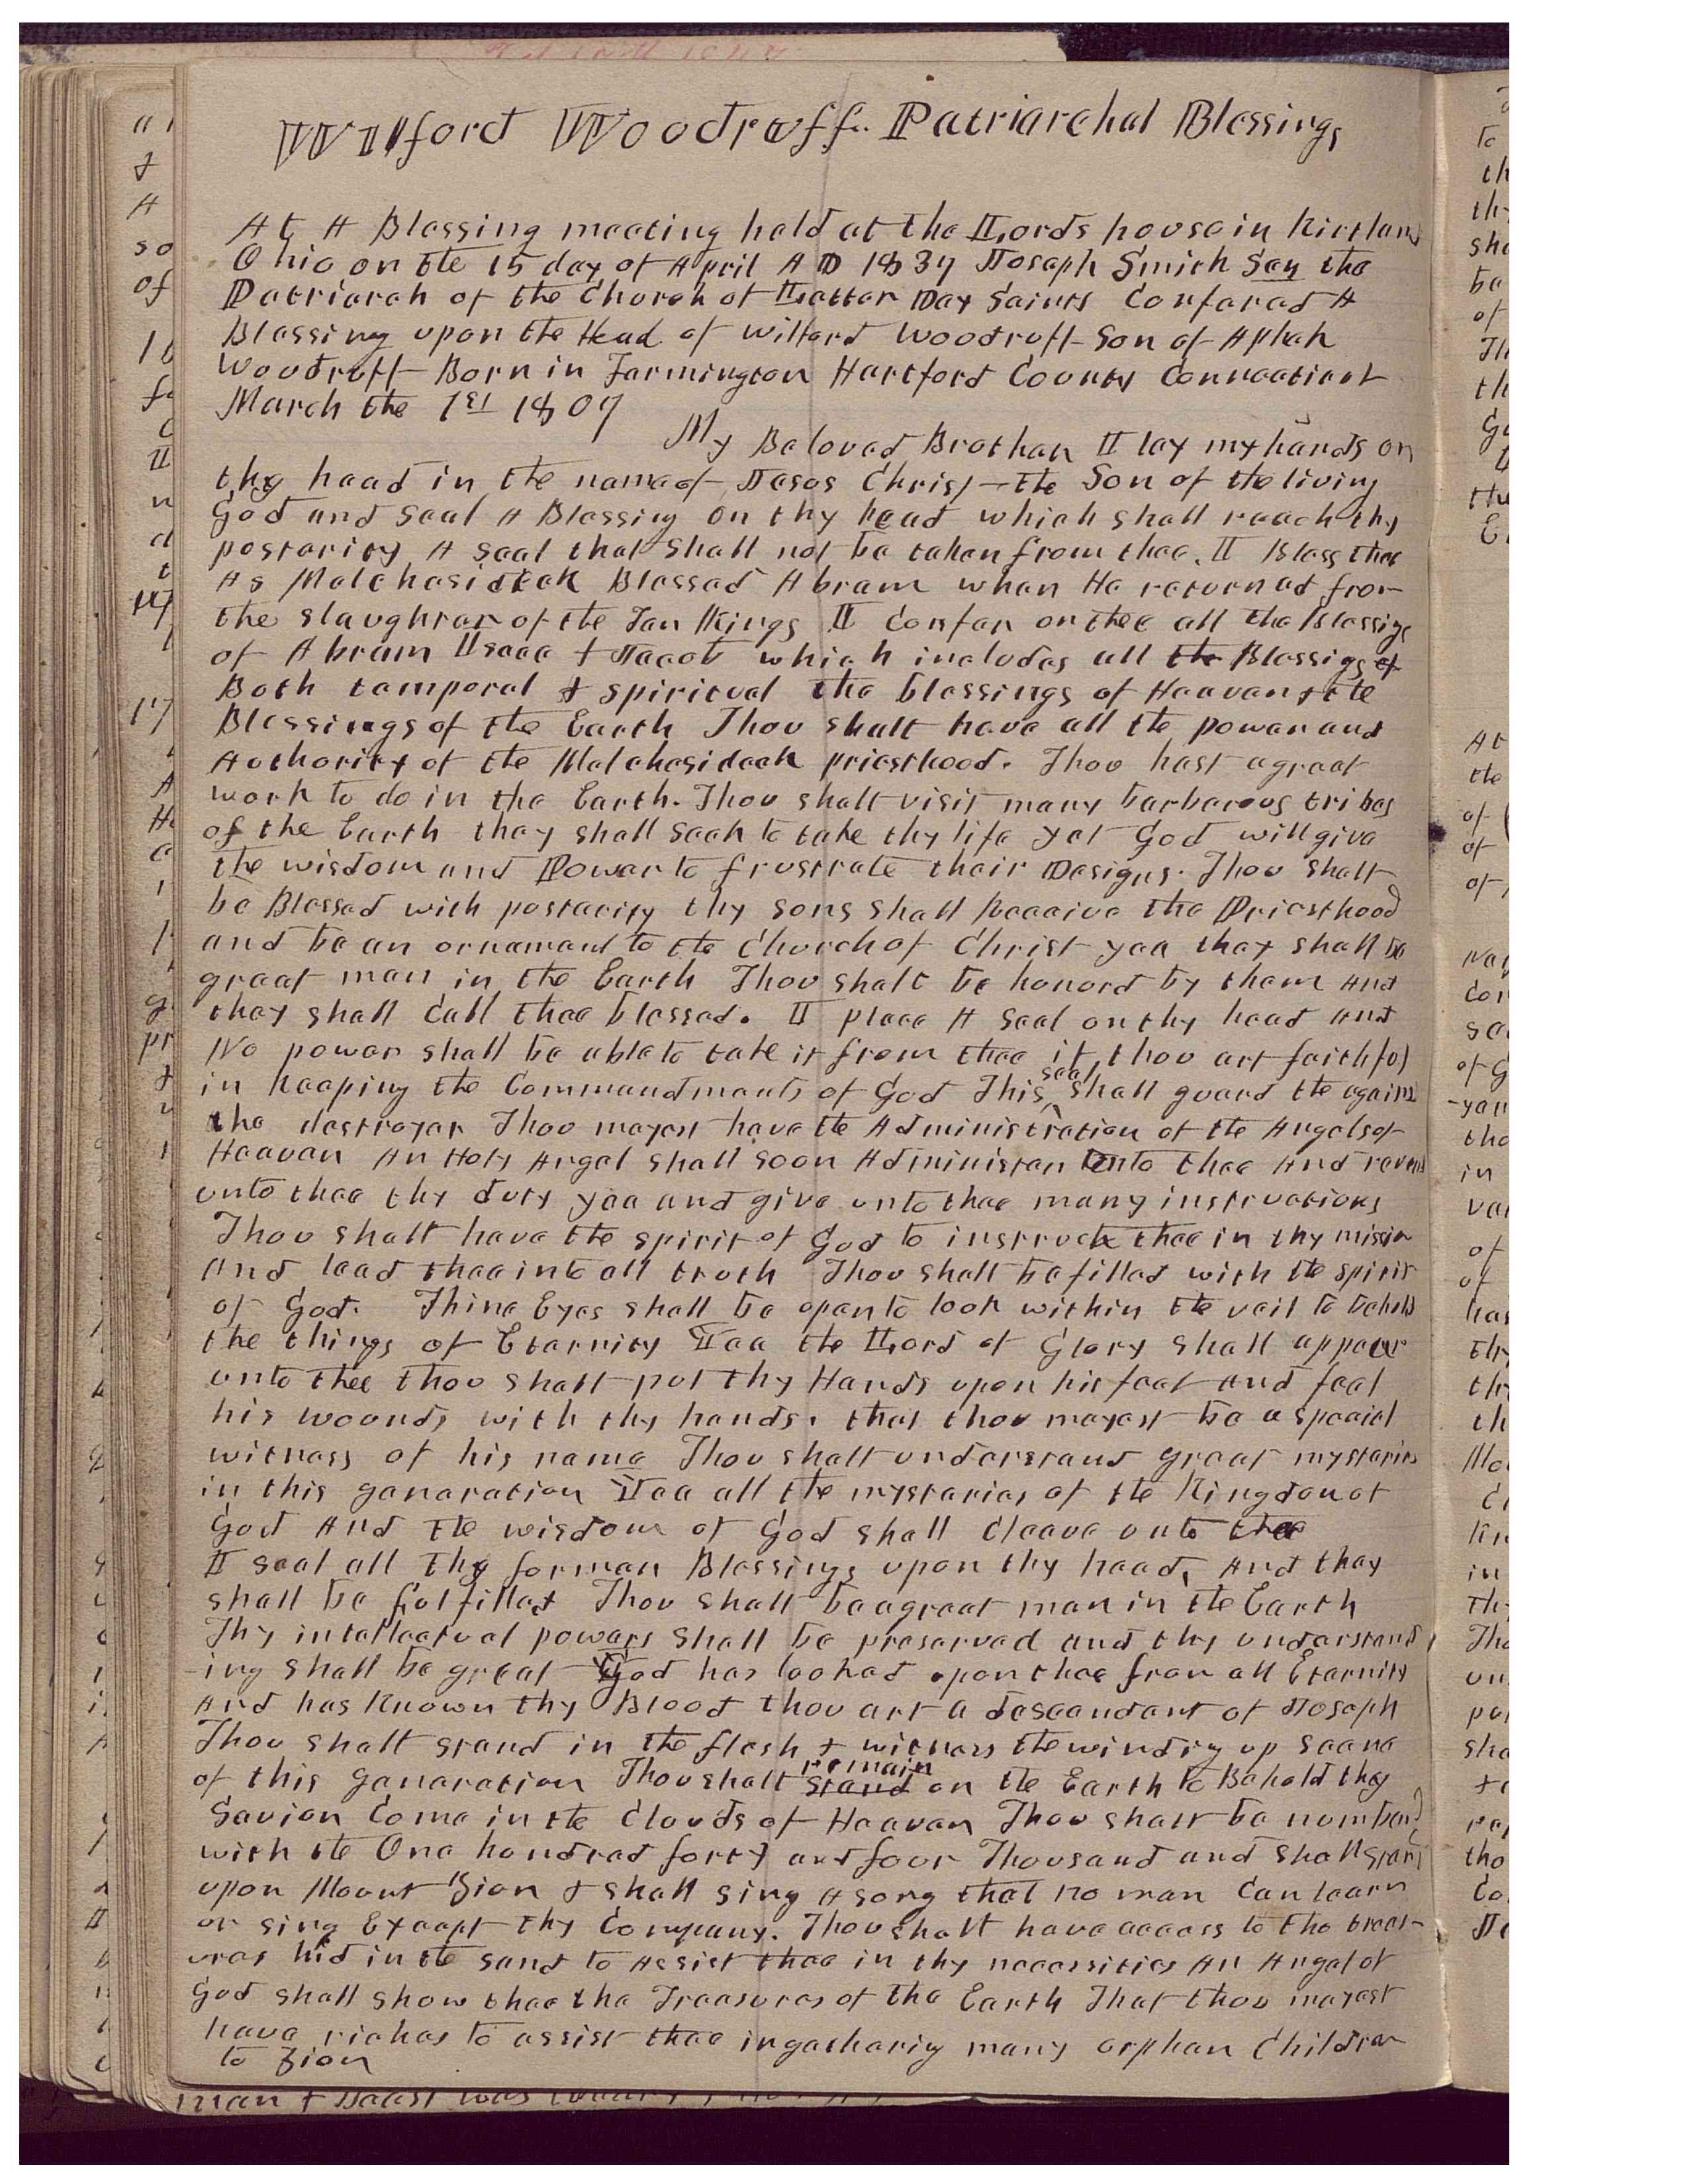 Wilford Woodruff Patriarchal Blessings
At A Blessing meeting held at the Lords house in Kirtland
Ohio on the 15 day of April AD 1837 Joseph Smith Sen the
Patriarch of the Church of Latter Day Saints Confered A
Blessing upon the Head of Wilford Woodruff Son of Aphek
Woodruff Born in Farmington Hartford County Connecticut
March the 1st 1807
My Beloved Brother I lay my hands on
thy head in the name of Jesus Christ the Son of the living
God and seal A Blessing on thy head which shall reach thy
posterity A seal that shall not be taken from thee. I Bless thee
As Melchesideck Blessed Abram when He returned from
the slaughter of the Ten Kings I Confer on thee all the Blessigs
of Abram Isaac & Jacob which includes all the Blessigs of
Both temporal & spiritual the blessings of Heaven & the
Blessings of the Earth Thou shalt have all the power and
Authority of the Melchesideck priesthood. Thou hast a great
work to do in the Earth. Thou shalt visit many barbarous tribes
of the Earth they shall seek to take thy life yet God will give
the wisdom and Power to frustrate their Designs. Thou shalt
be Blessed with posterity thy sons shall Receive the Priesthood
and be an ornament to the Church of Christ yea they shall be
great men in the Earth Thou shalt be honord by them And
they shall Call thee blessed. I place A Seal on thy head And
No power shall be able to take it from thee if thou art faithful
in keeping the Commandments of God This seal shall guard the against
the destroyer Thou mayest have the Administration of the Angels of
Heaven An Holy Angel shall soon Administer Unto thee And reveal
unto thee thy duty yea and give unto thee many instructions
Thou shalt have the spirit of God to instruct thee in thy mission
And lead thee into all truth Thou shalt be filled with the spirit
of God. Thine Eyes shall be open to look within the veil to behold
the things of Eternity Yea the Lord of Glory shall appear
unto thee thou shalt put thy Hands upon his feet and feel
his wounds with thy hands. that thou mayest be a special
witness of his name Thou shalt understand great mysteries
in this generation Yea all the mysteries of the Kingdom of
God And the wisdom of God shall Cleave unto thee
I seal all thy former Blessings upon thy head, And they
shall be fulfilled Thou shalt be a great man in the Earth
Thy intellectual powers shall be preserved and thy understand
-ing shall be great God has looked upon thee from all Eternity
And has Known thy Blood thou art a descendant of Joseph
Thou shalt stand in the flesh & witness the winding up scene
of this generation Thou shalt stand remain on the Earth to Behold thy
Savior Come in the Clouds of Heaven Thou shalt be numbered
with the One hundred forty and four Thousand and shall stand
upon Mount Zion & shall sing A song that no man Can learn
or sing Except thy Company. Thou shalt have access to the treas-
ures hid in the sand to Assist thee in thy necessities An Angel of
God shall show thee the Treasures of the Earth That thou mayest
have riches to assist thee in gatherig many orphan Children
to Zion